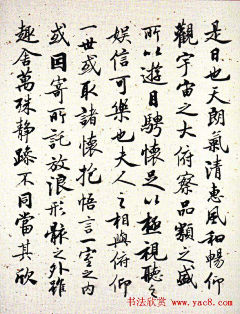 是日也天朗氣清惠風和暢仰
觀宇宙之大俯察品類之盛
所以遊目騁懷足以極視聽之
娛信可樂也夫人之相與俯仰
一世或取諸懷抱悟言一室之内
或因寄所託放浪形骸之外雖
趣舍萬殊靜躁不同當其欣
书法欣赏
www.yac8.com